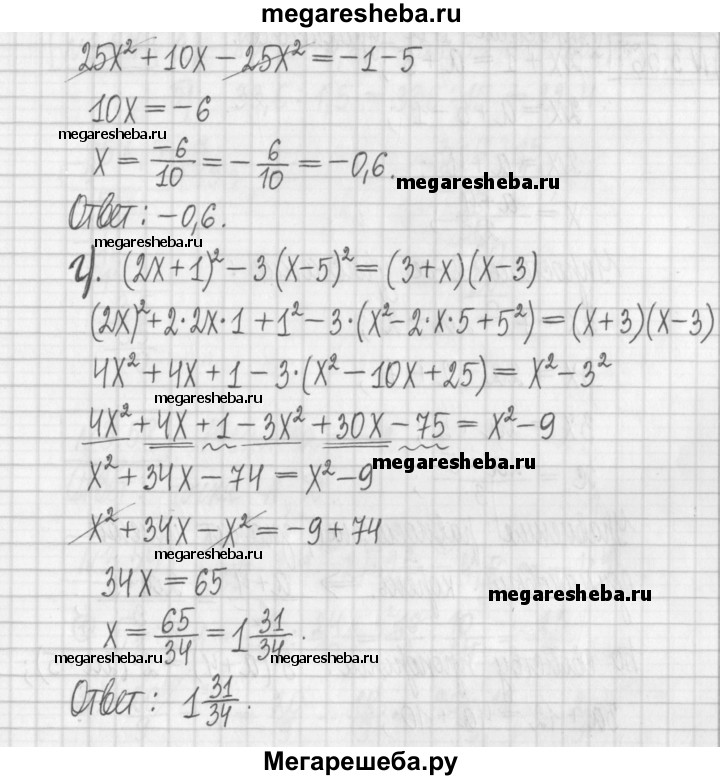 megaresheba.ru
25x² + 10x - 25x² = -1 - 5
10x = -6
megaresheba.ru
x = -6/10 = -6/10 = -0,6.
megaresheba.ru
megaresheba.ru
Ответ: -0,6.
megaresheba.ru
4). (2x+1)² - 3(x-5)² = (3+x)(x-3)
(2x)² + 2·2x·1 + 1² - 3·(x² - 2·x·5 + 5²) = (x+3)(x-3)
4x² + 4x + 1 - 3·(x² - 10x + 25) = x² - 3²
megaresheba.ru
4x² + 4x + 1 - 3x² + 30x - 75 = x² - 9
x² + 34x - 74 = x² - 9
megaresheba.ru
x² + 34x - x² = -9 + 74
megaresheba.ru
34x = 65
megaresheba.ru
x = 65/34 = 1 31/34.
megaresheba.ru
megaresheba.ru
Ответ: 1 31/34.
Мегарешеба.ру